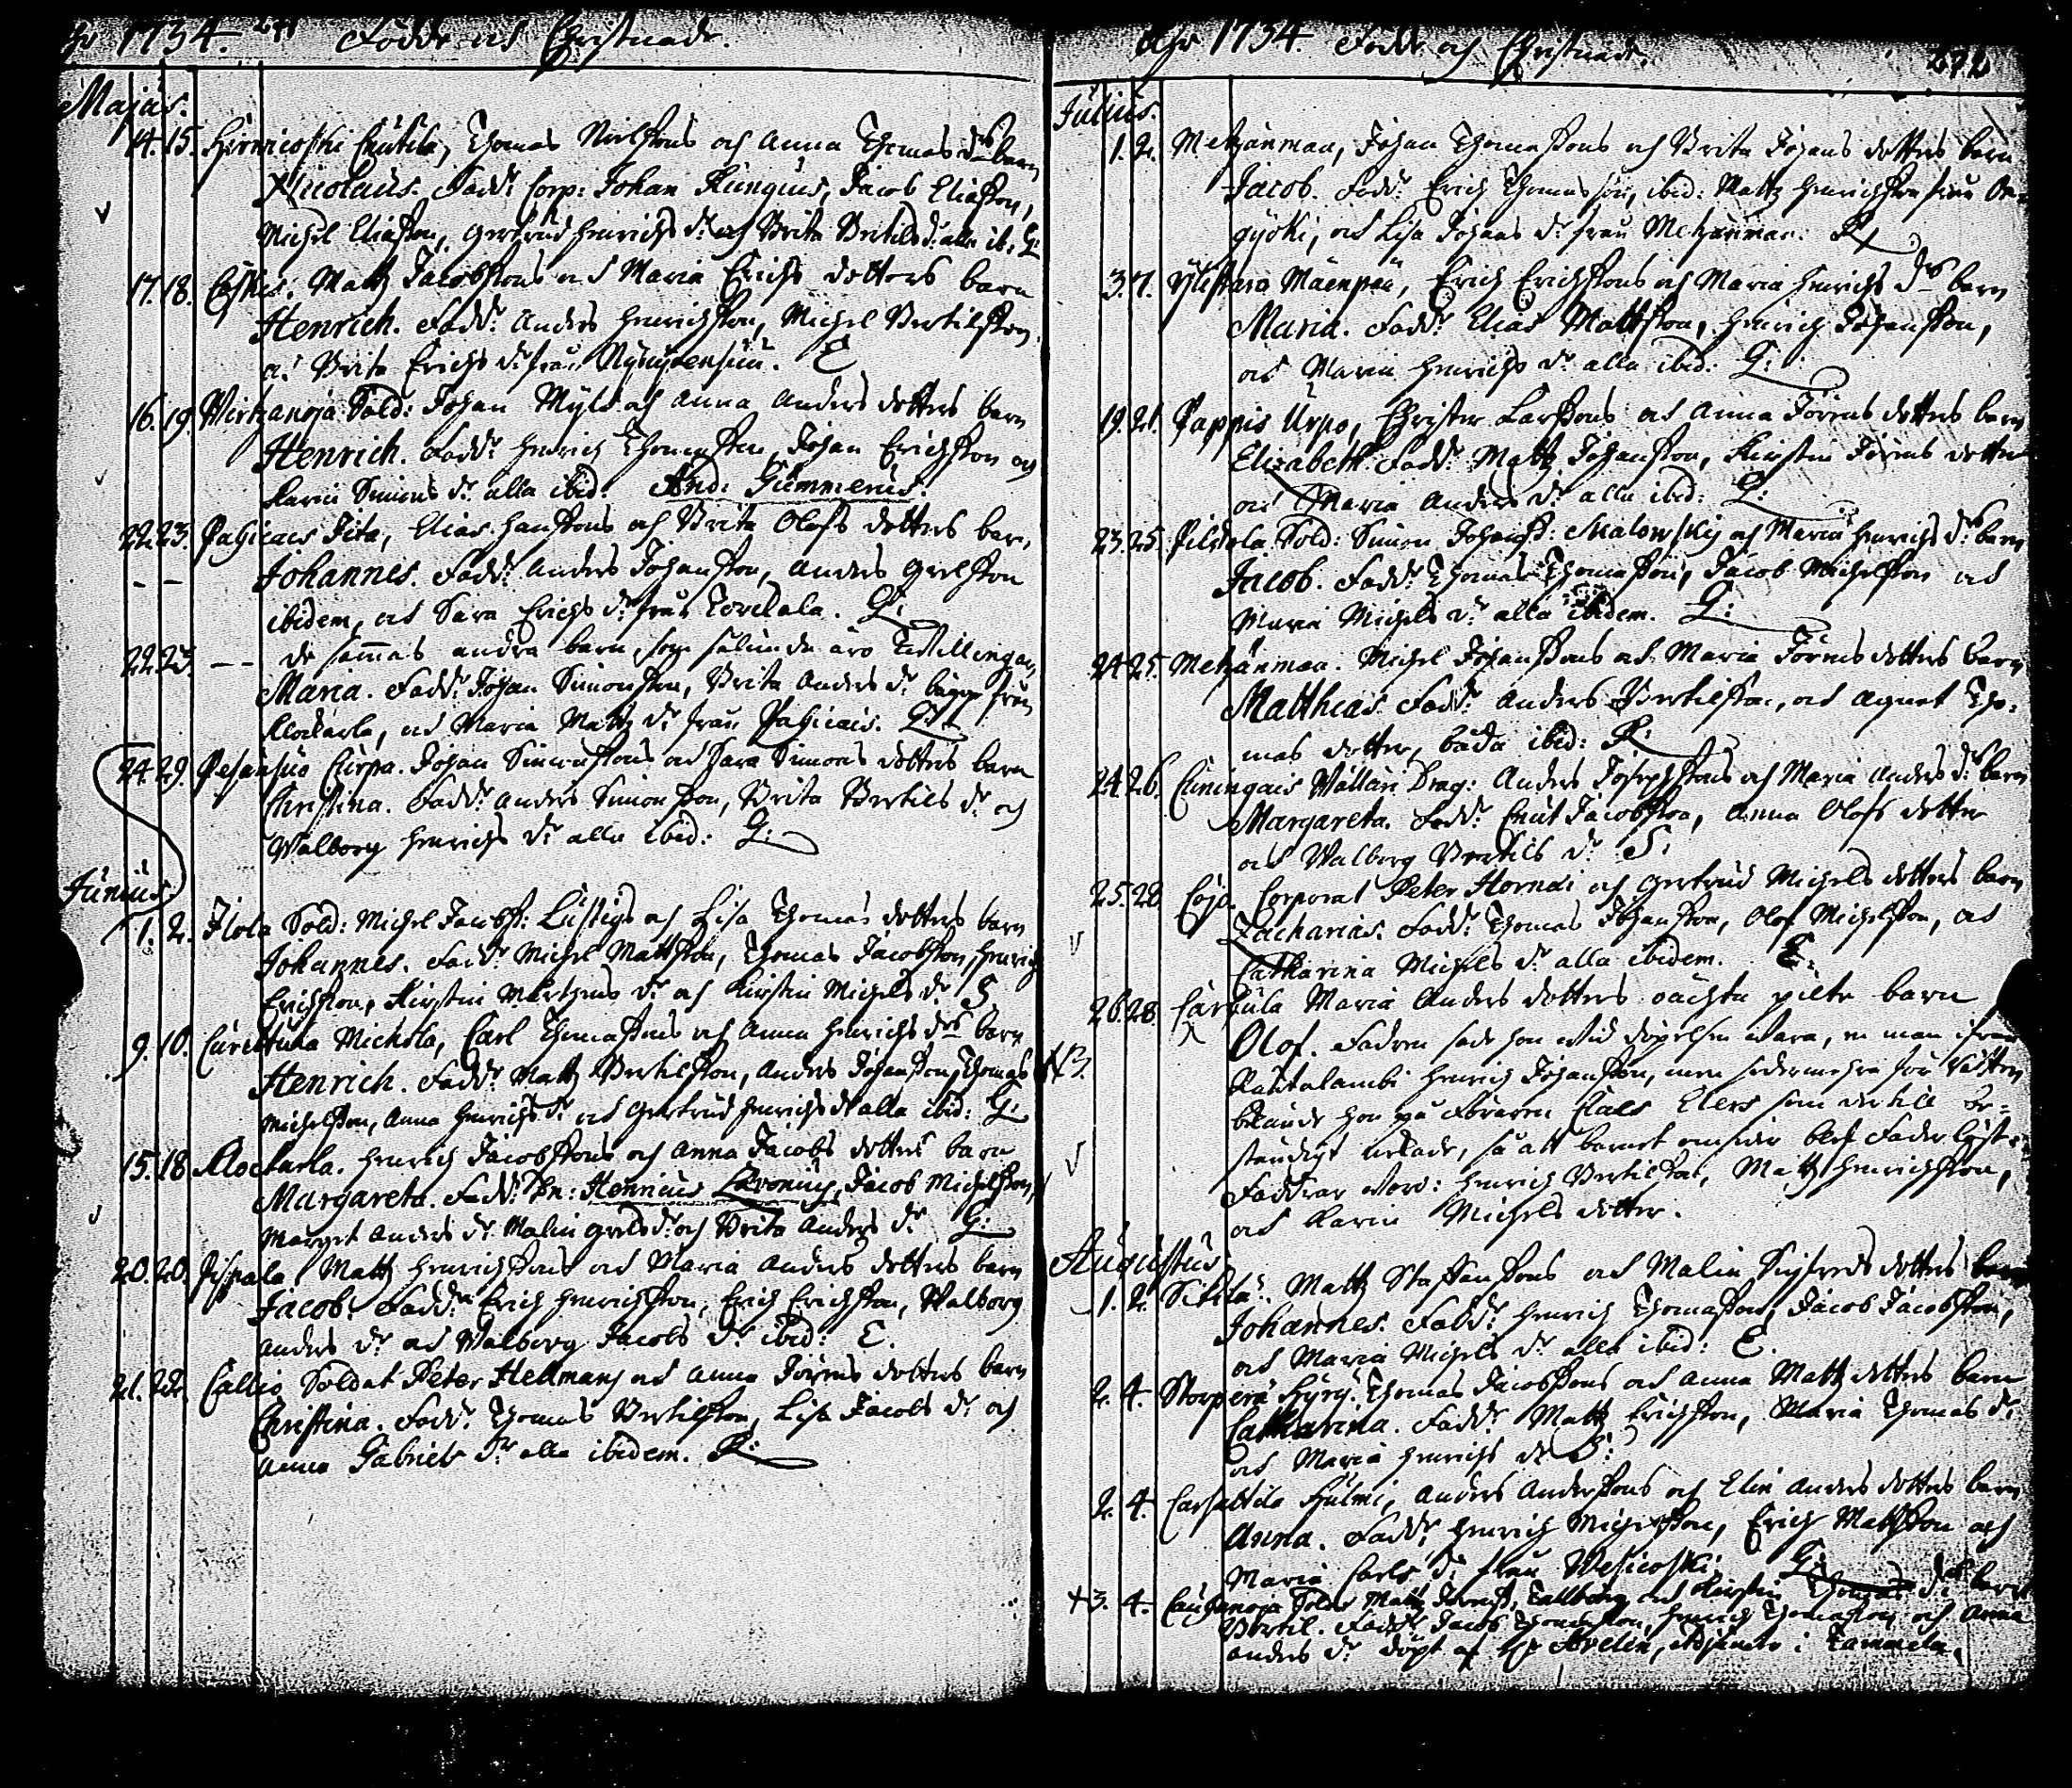 1734. Födde och Christnade.
Majus.
14. 15. Hirwicoski Thomas Nielssons och Anna Thomas drs barn
Nicolaus. Fadd: Corp: Johan Rungius, Jacob Eliasson,
Michel Eliasson, Gertrud Henrichs dr och Brita Bertils dr alla ib: G:
17. 18. Mattz Jacobssons och Maria Erichs dotters barn
Henrich. Fadd: Anders Henrichsson, Michel Bertilsson
och Brita Erichs dr från E
16. 19. Wirtzanoja Sold: Johan Myls och Anna Anders dotters barn
Henrich. Fadd: Henrich Thomasson, Johan Erichsson och
Karin Simons dr alla ibid: And: Gummerus.
22. 23. Pahicais Jita, Elias Hanssons och Brita Olofs dotters barn,
Johannes. Fadd: Anders Johansson, Anders Grelsson
ibidem, och Sara Erichs dr från Torckala. G:
22. 23. -- de sammas andra barn, som således äro Tvillingar,
Maria. Fadd: Johan Simonsson, Brita Anders dr bägge från
Klockarla, och Maria Mattz dr från Pahicais. G:
24. 29. Pesänsuo Curpa. Johan Simonssons och Sara Simons dotters barn
Christina. Fadd: Anders Simonsson, Brita Bertils dr och
Walborg Henrichs dr alla ibid: G:
Junius
1. 2. Ilola Sold: Michel Jacobss: Lustigs och Lisa Thomas dotters barn
Johannes. Fadd: Michel Mattsson, Thomas Jacobsson, Henrich
Erichsson, Kirstin Mårtens dr och Kirstin Michels dr S
9. 10. Michola, Carl Thomassons och Anna Henrichs drs barn
Henrich. Fadd: Mattz Bertilsson, Anders Johansson, Thomas
Michelsson, Anna Henrichs dr och Gertrud Henrichs dr alla ibid: G:
15. 18. Klockarla. Henrich Jacobssons och Anna Jacobs dotters barn
Margareta. Fadd: Hn: Henricus Lavonius, Jacob Michelsson,
Marget Anders dr Malin Grels dr och Brita Anders dr G:
20. 20. Pispala Mattz Henrichssons och Maria Anders dotters barn
Jacob. Fadd: Erich Henrichsson, Erich Erichsson, Walborg
Anders dr och Walborg Jacobs dr ibid: E.
21. 22. Callio Soldat Peter Hellmans och Anna Jörens dotters barn
Christina. Fadd: Thomas Bertilsson, Lisa Jacobs dr och
Anna Gabriels dr alla ibidem. R:
Åhr 1734. Födde och Christnade. 272
Julius.
1. 2. Metzänmaa, Johan Thomassons och Brita Johans dotters barn
Jacob. Fadd: Erich Thomasson, ibid: Mattz Henrichsson från
och Lisa Johans dr från Metzänmaa: R
3. 7. Ylistaro Mäenpää, Erich Erichssons och Maria Henrichs drs barn
Maria. Fadd: Elias Mattsson, Henrich Johansson,
och Maria Henrichs dr alla ibid: G:
19. 21. Pappis Urpo, Christer Larssons och Anna Jörens dotters barn
Elizabeth. Fadd: Mattz Johansson, Kirstin Jörens dotter
och Maria Anders dr alla ibid: G:
23. 25. Sold: Simon Johanss: Malowskij och Maria Henrichs drs barn
Jacob. Fadd: Thomas Thomasson, Jacob Michelsson och
Maria Michels dr alla ibidem. G:
24. 25. Metzänmaa. Michel Johanssons och Maria Jörens dotters barn
Matthias. Fadd: Anders Bertilsson, och Agnet Tho-
mas dotter, båda ibid: R:
24. 26. Cuningais Wälläri Drag: Anders Josephssons och Maria Anders drs barn
Margareta. Fadd: Cnut Jacobsson, Anna Olofs dotter
och Walborg Bertils dr S:
25. 28. Cojo Corporal Peter Hornai och Gertrud Michels dotters barn
Zacharias. Fadd: Thomas Johansson, Olof Michelsson, och
Catharina Michels dr alla ibidem. E:
26. 28. Maria Anders dotters oächta barn
Olof. Fadren sade hon wid döpelsen wara, en man ifrån
Rautalambi Henrich Johansson, men sedermehra för Rätten
hon på Claes Elers som der till be-
ständigt nekade, så att barnet blef Faderlöst.
Faddrar woro: Henrich Bertilsson, Mattz Henrichsson,
och Karin Michels dotter.
Augustus
1. 2. Mattz Staffanssons och Malin Sigfreds dotters barn
Johannes. Fadd: Henrich Thomasson, Jacob Jacobsson,
och Maria Michels dr alla ibid: E.
2. 4. Thomas Jacobssons och Anna Mattz dotters barn
Catharina. Fadd: Mattz Erichsson, Maria Thomas dr
och Maria Henrichs dr S:
2. 4. Hulmi, Anders Anderssons och Elin Anders dotters barn
Anna. Fadd: Henrich Michelsson, Erich Mattsson och
Maria Carls dr från Wesicoski. G:
3. 4. Sold: Mattz Tallberg och Kirstin Thomas drs barn
Bertil. Fadd: Jacob Thomasson, Henrich Thomasson och Anna
Anders dr döpt af Hr Avelin, Adjunct i Tammela.